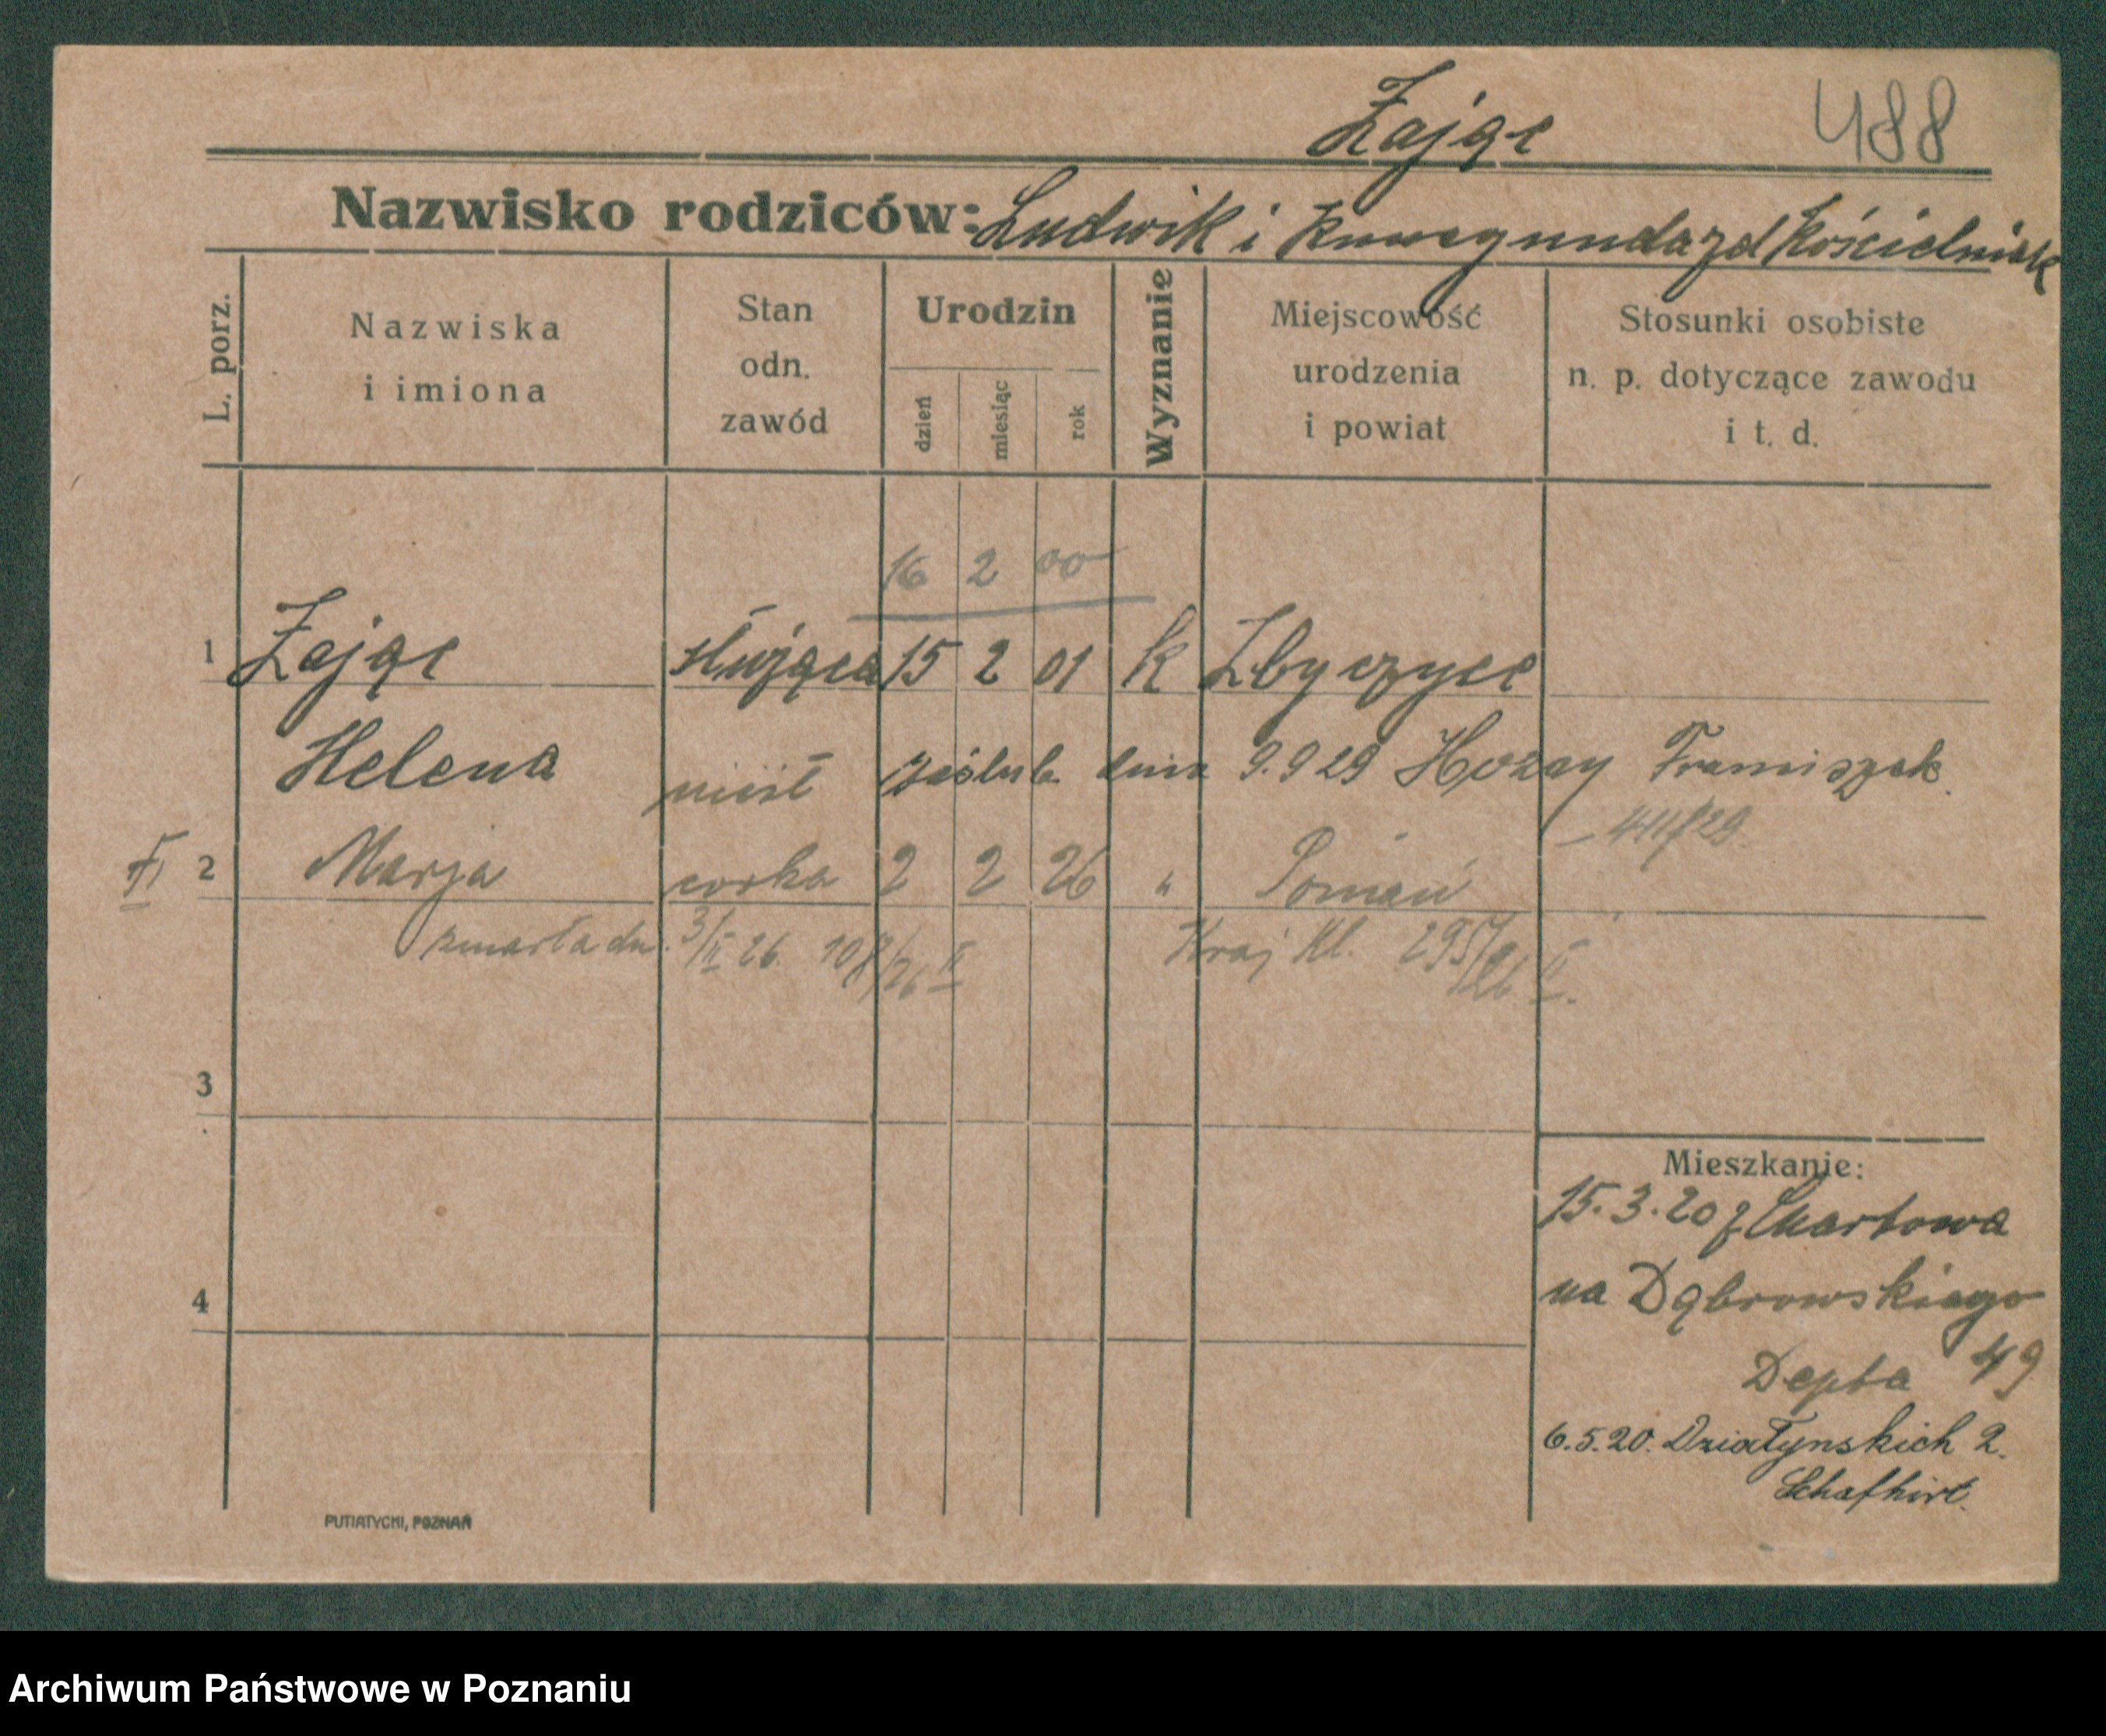 Zając 488
Nazwisko rodziców: Ludwik i Kunegunda zd Kościelniak
L. porz.
Nazwiska
i imiona
Stan
odn.
zawód
Urodzin
dzień
miesiąc
rok
Wyznanie
Miejscowość
urodzenia
i powiat
Stosunki osobiste
n. p. dotyczące zawodu
i t. d.
16 2 00
1 Zając służąca 15 2 01 K Zbyczyce
Helena zaślub. dnia 9.9 29 Franciszek
411/29
II 2 Marja corka 2 2 26 " Poznań
zmarła dn. 3/II 26. 107/26 II Kl. II.
3
4
Mieszkanie:
15.3.20 z
na Dąbrowskiego
Depta 49
6.5.20. Działynskich 2.
Schafhirt.
PUTIATYCKI, POZNAŃ
Archiwum Państwowe w Poznaniu